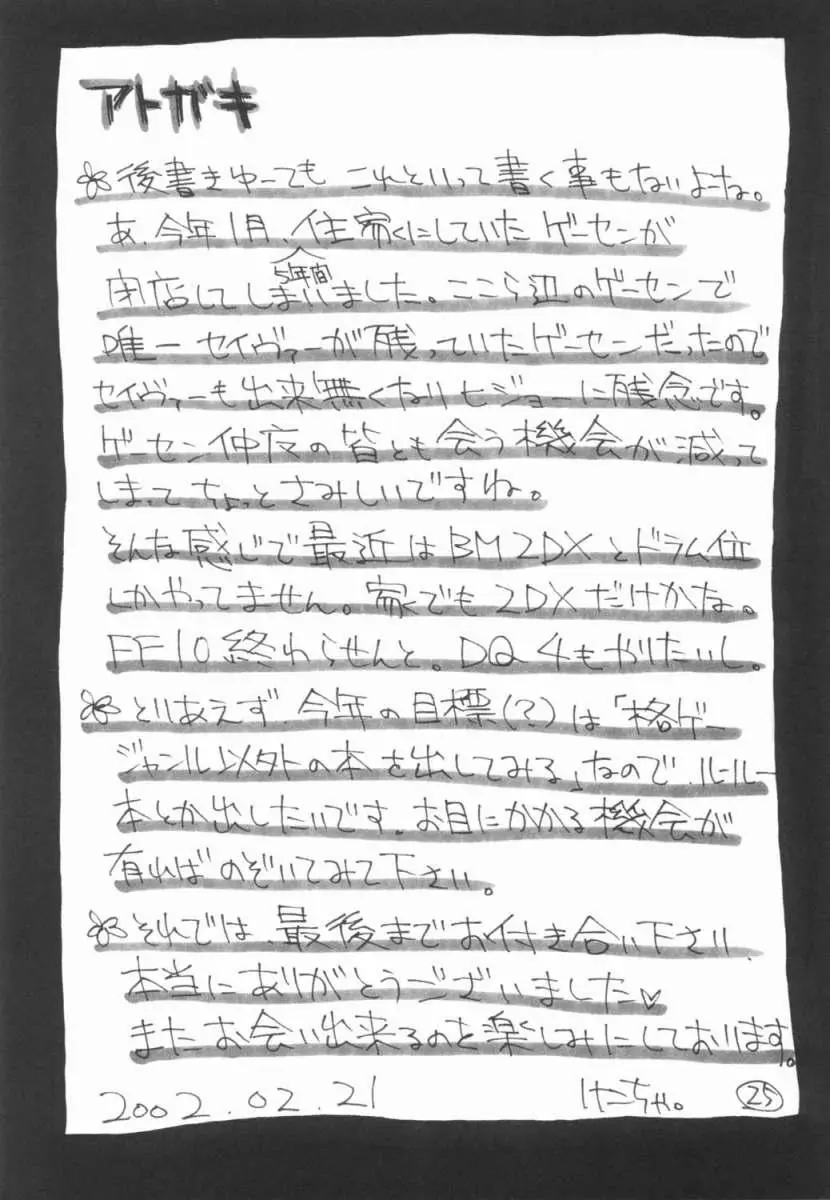 アトガキ
後書きゆーても これといって書く事もないよーね。
あ、今年1月、住家にしていたゲーセンが
5年間
閉店してしまいました。ここら辺のゲーセンで
唯一セイヴァーが残っていたゲーセンだったので
セイヴァーも出来無くなりヒジョーに残念です。
ゲーセン仲間の皆とも会う機会が減って
しまってちょっとさみしいですね。
そんな感じで最近はBM2DXとドラム位
しかやってません。家でも2DXだけかな。
FF10終わらせんと。DQ4もやりたいし。
とりあえず、今年の目標(?)は「格ゲー
ジャンル以外の本を出してみる」なので、ルールー
本とか出したいです。お目にかかる機会が
有ればのぞいてみて下さい。
それでは、最後までお付き合い下さい、
本当にありがとうございました♡
またお会い出来るのを楽しみにしております。
2002.02.21 けこちゃ。 25